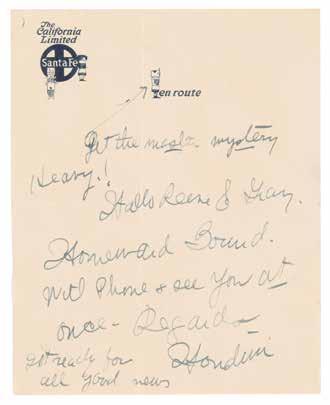 The
California
Limited
Santa Fe
en route
Get the mystery
Heavy!
Hallo Reese & Gray.
Homeward Bound.
Will Phone & see you at
once - Regards
Houdini
Get ready for
all good news